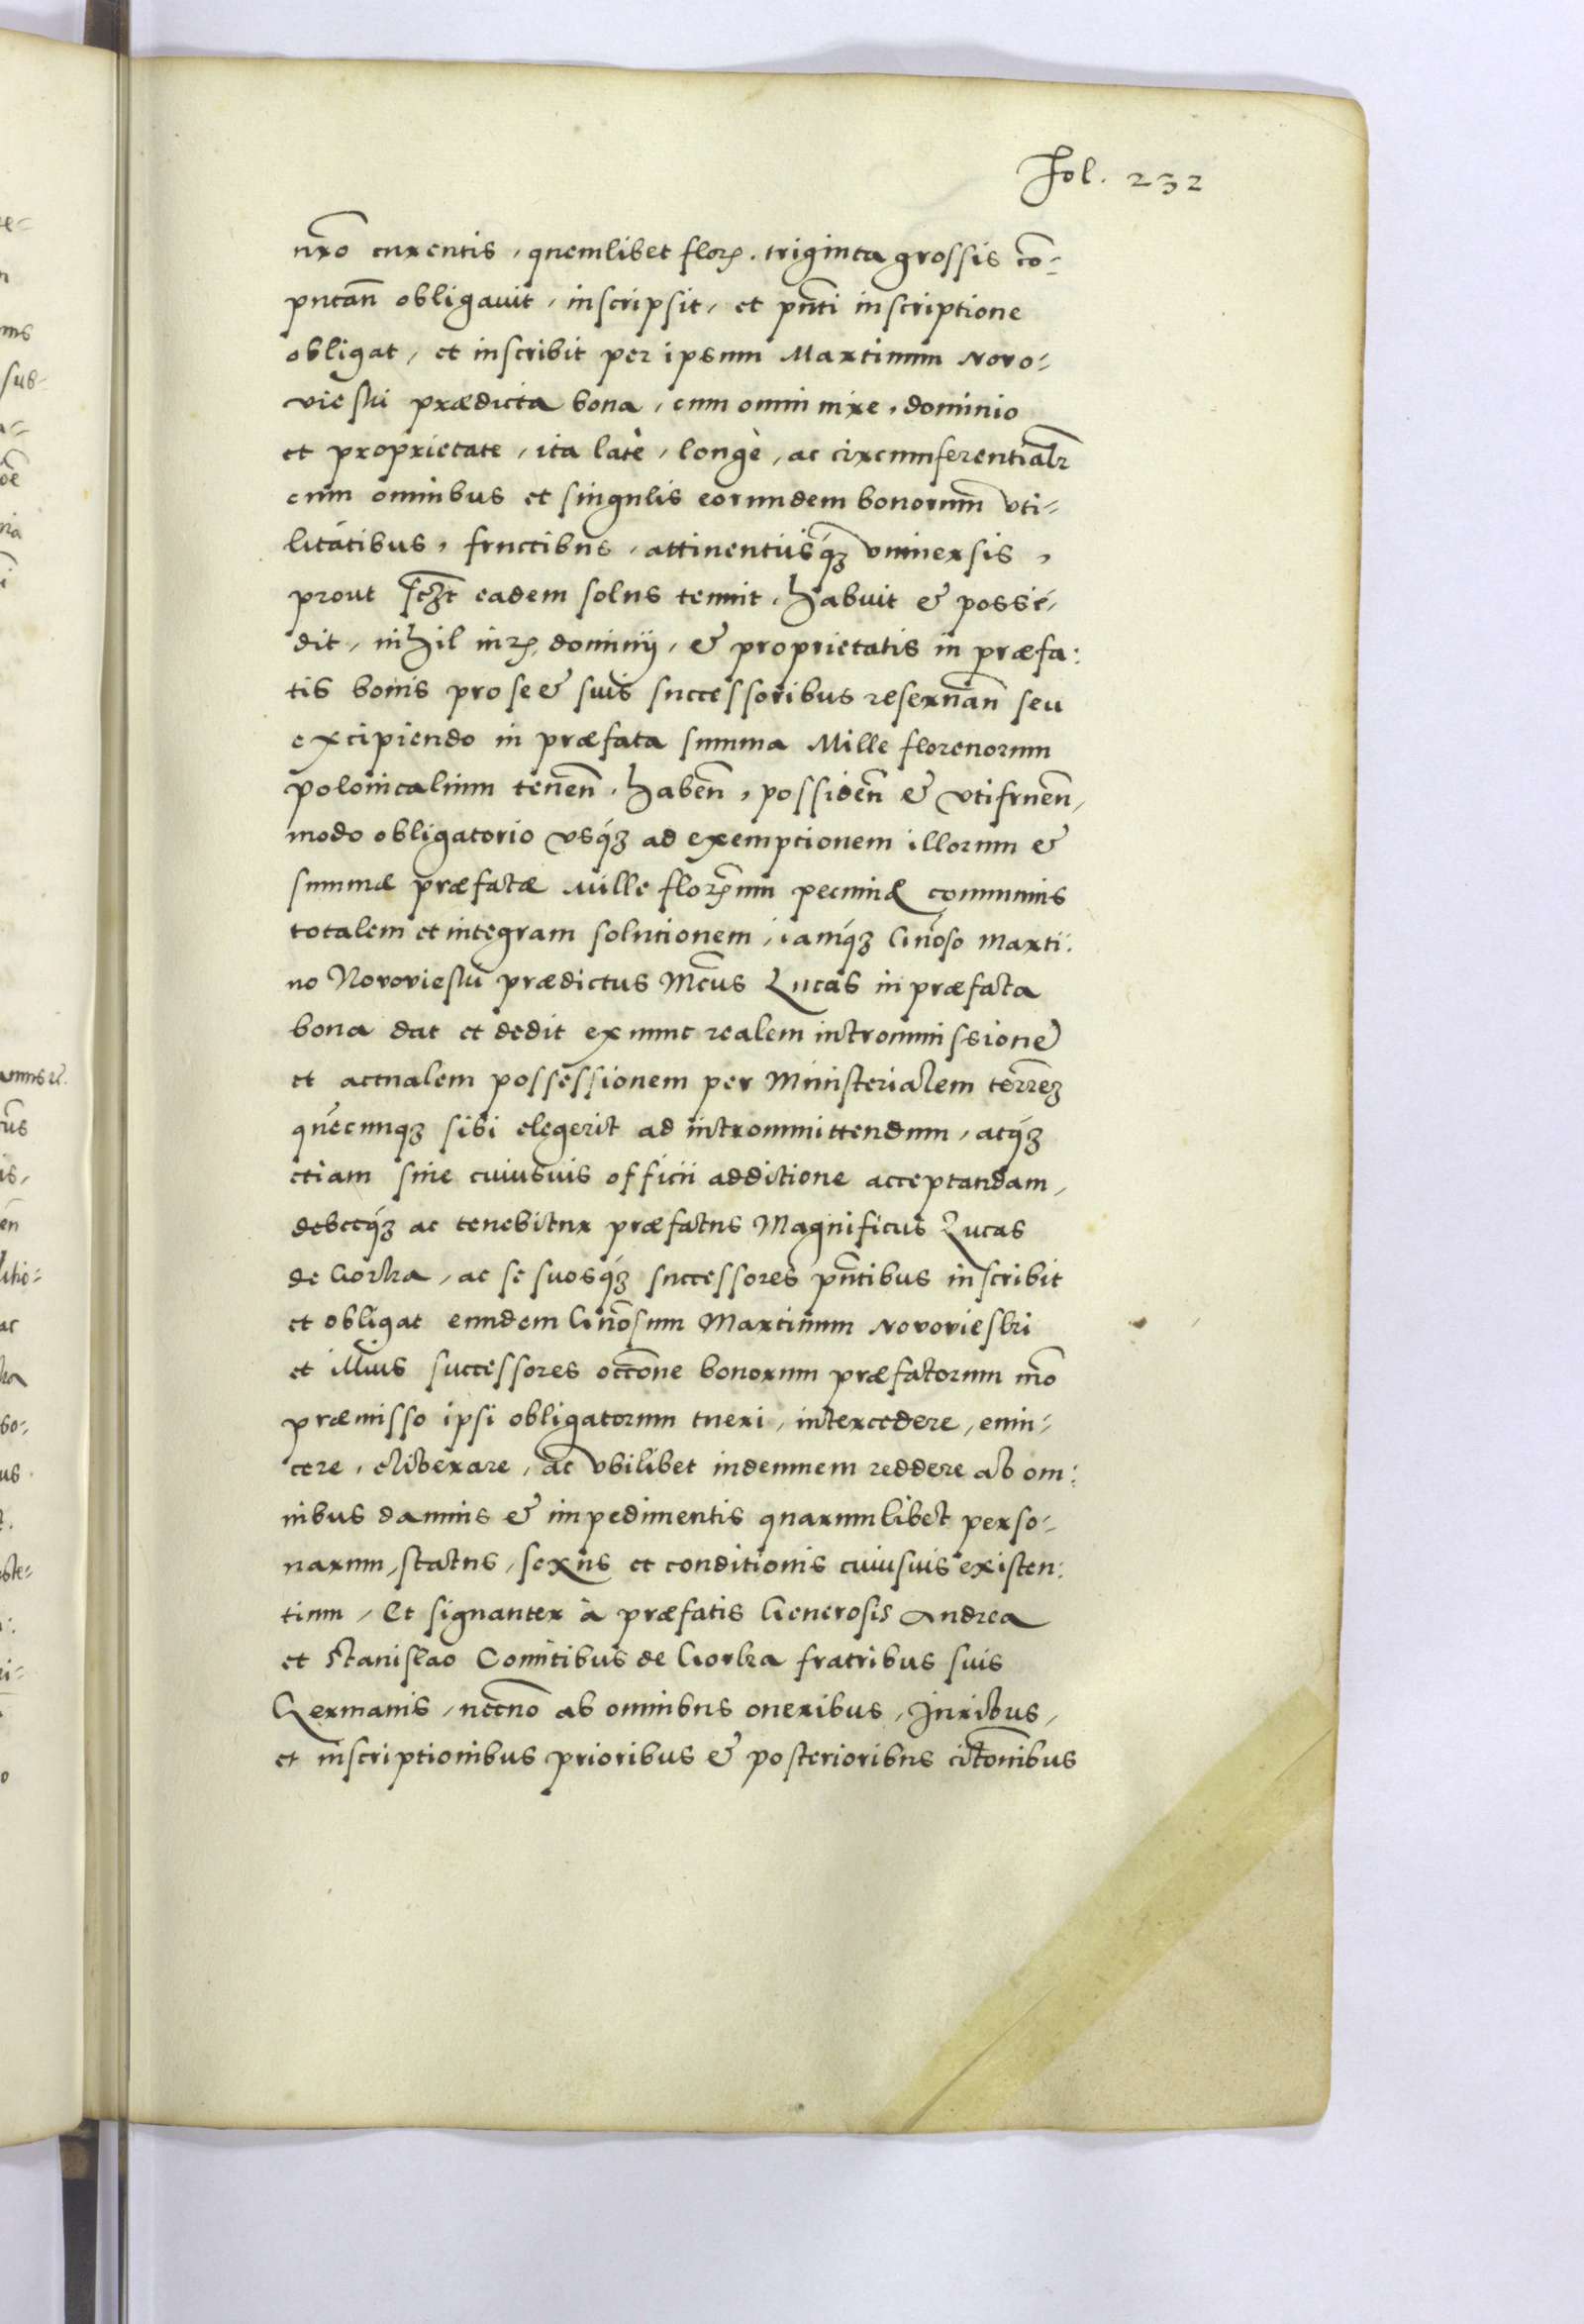 Fol. 232
nr̃o curentis, quemlibet flor. triginta grossis cõ-
putan̄ obligauit, inscripsit, et pñti inscriptione
obligat, et inscribit per ipsum Martinum Novo-
vieski prædicta bona, cum omni iure, dominio
et proprietate, ita latè, longè, ac circumferentialr
cum omnibus et singulis eorundem bonorum vti-
litatibus, fructibus, attinentiisq́ue vniuersis,
prout eadem solus tenuit, habuit & posse-
dit, nihil iur. dominij, & proprietatis in præfa:
tis bonis pro se & suis successoribus reseruan̄ seu
excipiendo in præfata summa Mille florenorum
polonicalium tenen̄, haben̄, possiden̄ & vtifruen̄,
modo obligatorio vsq́ue ad exemptionem illorum &
summæ præfatæ Mille florenum pecuniæ communis
totalem et integram solutionem, iamq́ue Gñoso Marti:
no Novovieski prædictus Mcus Lucas in præfata
bona dat et dedit ex nunc realem intromissionẽ
et actualem possessionem per Ministerialem terrẽ
quẽcunque sibi elegerit ad intromittendum, atq́ue
etiam sine cuiusuis officii additione acceptandam,
debetq́ue ac tenebitur præfatus Magnificus Lucas
de Gorka, ac se suosq́ue successores pñtibus inscribit
et obligat eundem Gñosum Martinum Novovieski
et illius successores occõne bonorum præfatorum mõ
præmisso ipsi obligatorum tueri, intercedere, euin-
cere, eliberare, ac vbilibet indemnem reddere ab om:
nibus damnis & impedimentis quarumlibet perso-
narum, status, sexus et conditionis cuiusuis existen:
tium, Et signanter à præfatis Generosis Andrea
et Stanislao Comitibus de Gorka fratribus suis
Germanis, necnõ ab omnibus oneribus, Iuribus,
et inscriptionibus prioribus & posterioribus citõnibus